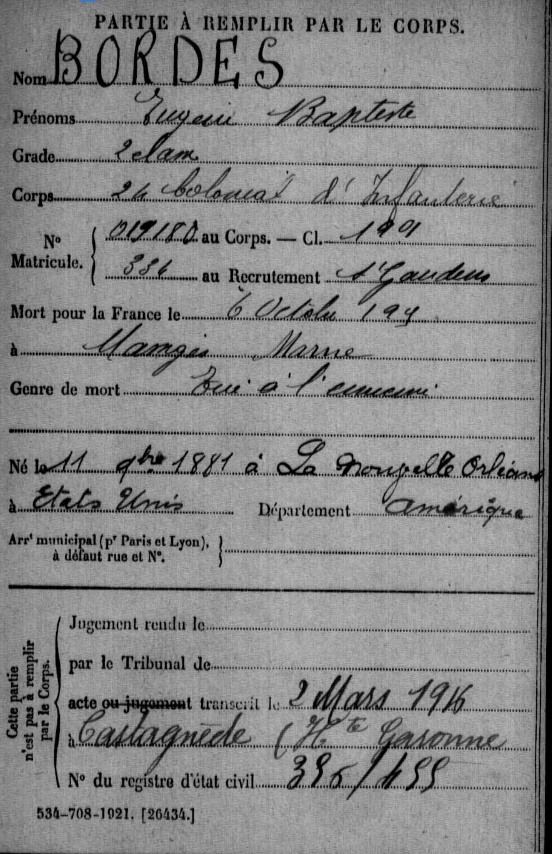 PARTIE À REMPLIR PAR LE CORPS.
Nom BORDES
Prénoms Eugène Baptiste
Grade 2e classe
Corps 24 Colonial d'Infanterie
N° Matricule. { 019180 au Corps. — Cl. 1901
336 au Recrutement St Gaudens
Mort pour la France le 6 Octobre 191
à Marne
Genre de mort Tué à l'ennemi
Né le 11 9bre 1881 à La Nouvelle Orléans
à Etats Unis Département Amérique
Arrt municipal (pr Paris et Lyon), }
à défaut rue et N°.
Cette partie
n'est pas à remplir
par le Corps.
Jugement rendu le
par le Tribunal de
acte ou jugement transcrit le 2 Mars 1916
à Castagnède (Hte Garonne
N° du registre d'état civil
534-708-1921. [26434.]